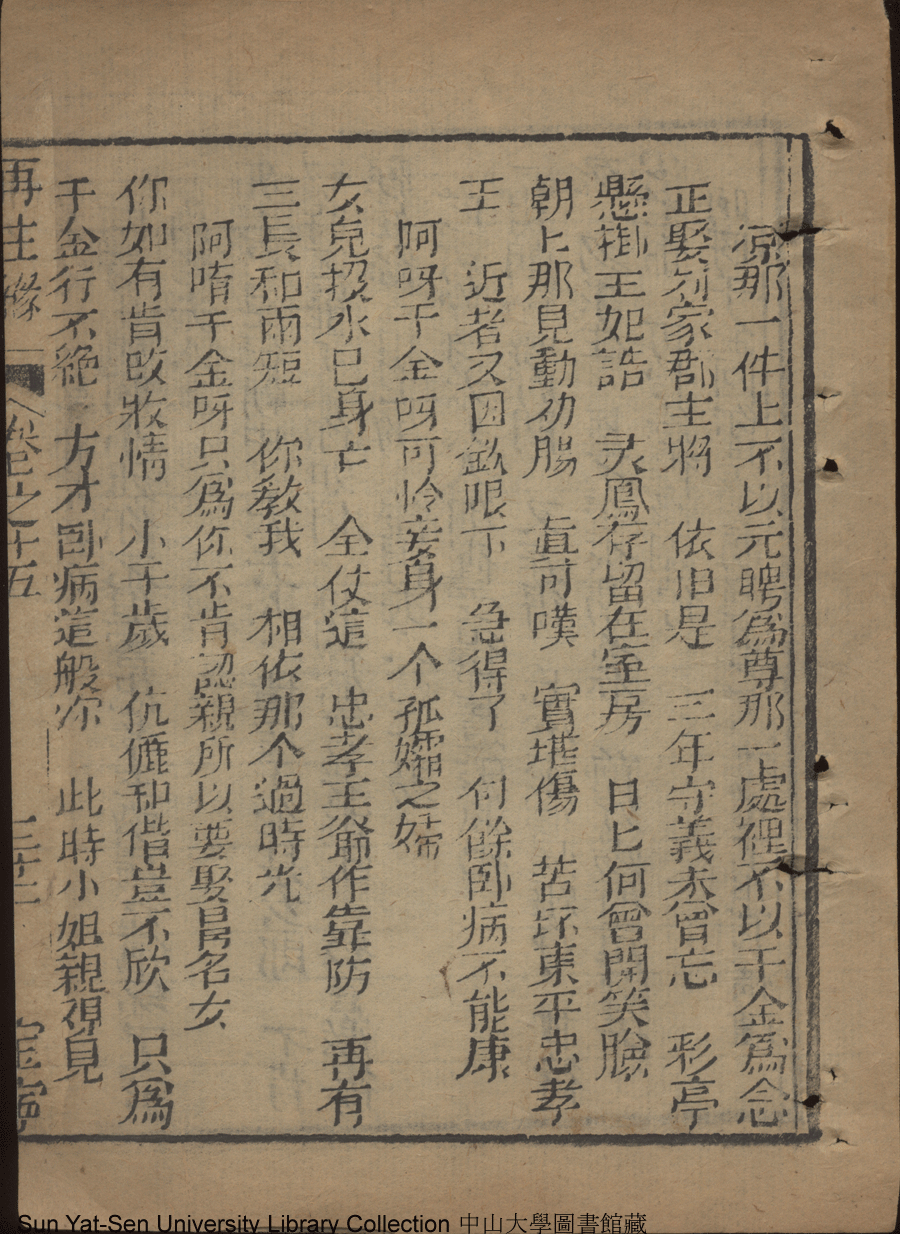 凉那一件上不以元聘爲尊那一處裡不以千金爲念
正娶刘家郡主將　依旧是　三年守義未曾忘　彩亭
懸掛王妃誥　灵鳳存留在室房　日匕何曾開笑臉
朝匕那見動功腸　眞可嘆　實堪傷　苦坏東平忠孝
王　近者又因欽限下　急得了　何餘卧病不能康
阿呀千金呀可怜妾身一个孤孀之婦
女皃投水已身亡　全仗這　忠孝王爺作靠防　再有
三長和兩短　你教我　相依那个過時光
阿唷千金呀只爲你不肯認親所以要娶昌名女
你如有肯改牧情　小千歲　伉儷和偕豈不欣　只爲
千金行不絕　方才卧病這般你　此時小姐親視見
再生緣　卷之十五
Sun Yat-Sen University Library Collection 中山大學圖書館藏